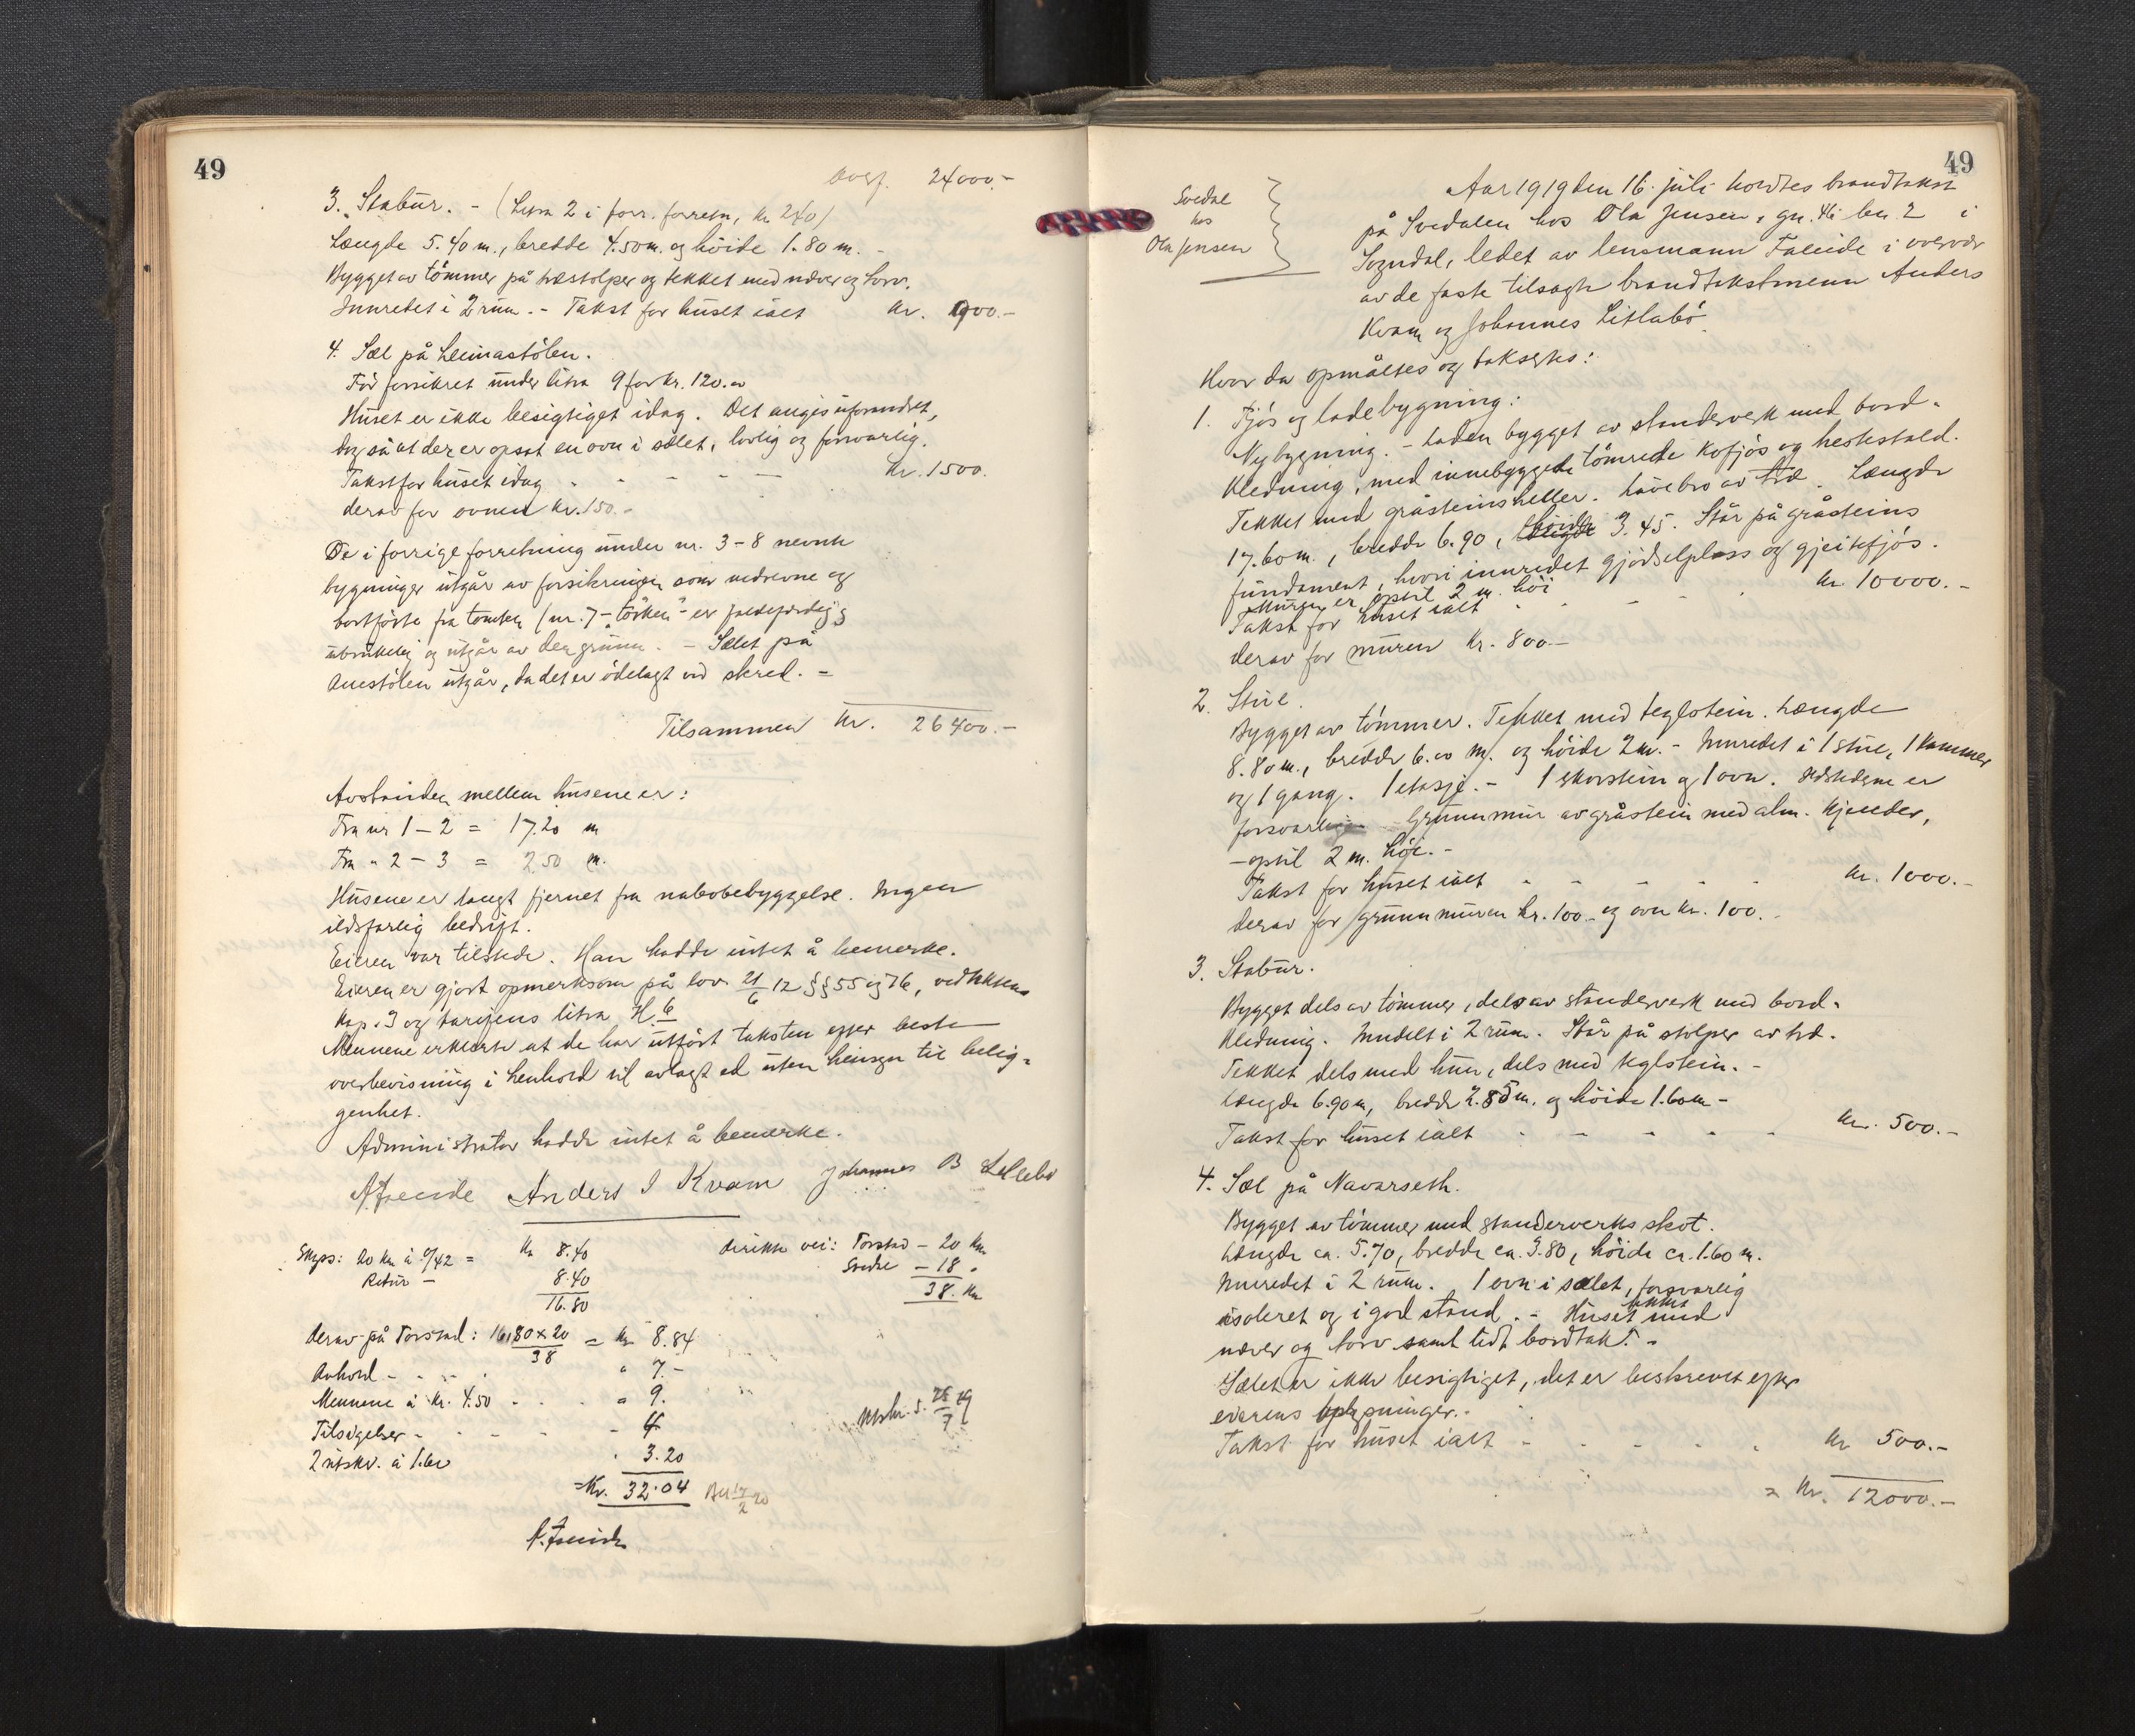 49
Overf. 24000.-
3. Stabur. - (Litra 2 i forr. forretn, kr 240)
Længde 5.40 m., bredde 4.50 m. og höide 1.80 m. -
Bygget av tömmer på træstolper og tekket med næver og torv.
Innredet i 2 rum. - Takst for huset ialt kr. 900.-
4. Sæl på Heimastölen.
För forsikret under litra 9 for kr. 120.00
Huset er ikke besigtiget idag. Det angis uforandret,
dog så at der er opsat en ovn i sælet, lovlig og forsvarlig.
Takst for huset idag - - - - - Kr. 1500.
derav for ovnen kr. 150.-
De i forrige forretning under nr. 3-8 nevnte
bygninger utgår av forsikringen som nedrevne og
bortförte fra tomten (nr. 7 - "törken" - er faldefærdig og
ubrukelig og utgår av den grunn. - Sælet på
Anestölen utgår, da det er ödelagt ved skred. -
Tilsammen kr. 26400.-
Avstanden mellem husene er:
Fra nr 1 - 2 = 17.20 m
Fra " 2 - 3 = 2.50 m.
Husene er langt fjernet fra nabobebyggelse. Ingen
ildsfarlig bedrift.
Eieren var tilstede. Han hadde intet å bemerke.
Eieren er gjort opmerksom på lov 21/6 12 §§ 55 og 76, vedtektens
kap. 3 og tarifens litra H. 6
Mennene erklærte at de har utfört taksten efter beste
overbevisning i henhold til avlagt ed uten hensyn til belig-
genhet.
Administrator hadde intet å bemerke.
Anders I Kvam Johannes B Litlebö
Skyss: 20 km à 0/42 = Kr 8.40
Retur - 8.40
16.80
direkte vei: Torstad - 20 km
Svedal - 18 "
38. km
derav på Torstad: 16,80 x 20 / 38 = kr 8.84
Avhold - - - - " 7.-
Mennene à kr. 4.50 - - - " 9.
Tilsigelser - - - - - 4
2 utskr. à 1.60 " 3.20
= Kr. 32.04
Utskr. s. 28/7 19
49
Svedal
hos
Ola Jensen
Aar 1919 den 16. juli holdtes brandtakst
på Svedalen hos Ola Jensen, gn. 46 bn. 2 i
Sogndal, ledet av lensmann Faleide i overvær
av de faste tilsagte brandtakstmenn Anders
Kvam og Johannes Litlabö.
Hvor da opmåltes og taksertes:
1. Fjös og ladebygning:
Nybygning. - Laden bygget av standerverk med bord-
kledning, med innebyggede tömrede kofjös og hestestald.
Tekket med gråsteinsheller. Låvebro av træ. Længde
17.60 m., bredde 6.90, höide 3.45. Står på gråsteins
fundament, hvori innredet gjödselplass og gjeitefjös.
Muren er optil 2 m. höi
Takst for huset ialt - - - - kr. 10000.-
derav for muren kr. 800.-
2. Stue.
Bygget av tömmer. Tekket med teglstein. Længde
8.80 m., bredde 6.00 m. og höide 2 m. - Innredet i 1 stue, 1 kammer
og 1 gang. 1 etasje. - 1 skorstein og 1 ovn. Ildstedene er
forsvarlige. Grunnmur av gråstein med alm. kjelder,
- optil 2 m. höi. -
Takst for huset ialt - - - - - kr. 1000.-
derav for grunnmuren kr. 100.- og ovn kr. 100.-
3. Stabur.
Bygget dels av tömmer, dels av standerverk med bord-
kledning. Inndelt i 2 rum. Står på stolper av træ.
Tekket dels med hun, dels med teglstein. -
Længde 6.90 m, bredde 2.85 m. og höide 1.60 m -
Takst for huset ialt - - - - - kr. 500.-
4. Sæl på Navarseth.
Bygget av tömmer med standerverks skot.
Længde ca. 5.70, bredde ca. 3.80, höide ca. 1.60 m.
Innredet i 2 rum. 1 ovn i sælet, forsvarlig
isoleret og i god stand. - Huset tekket med
næver og torv samt tett bordtak. -
Sælet er ikke besigtiget, det er beskrevet efter
eierens oplysninger. -
Takst for huset ialt - - - - - kr 500.-
= kr. 12000.-